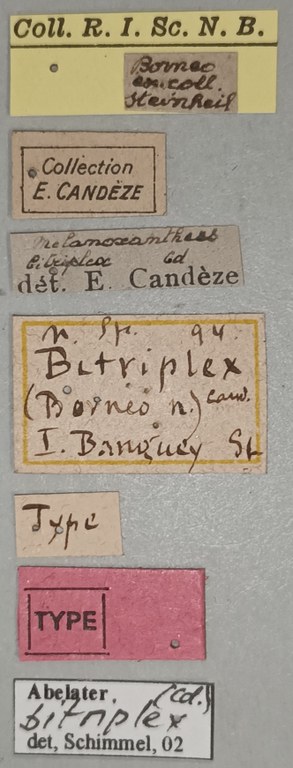 Coll. R. I. Sc. N. B.
Borneo
ex coll.
Steinheil
Collection
E. CANDÈZE
Melanoxanthus
bitriplex Cd
dét. E. Candèze
n. Sp. 94.
Bitriplex
(Borneo n.) Cand.
I. Banguey St
Type
TYPE
Abelater. (Cd.)
bitriplex
det, Schimmel, 02